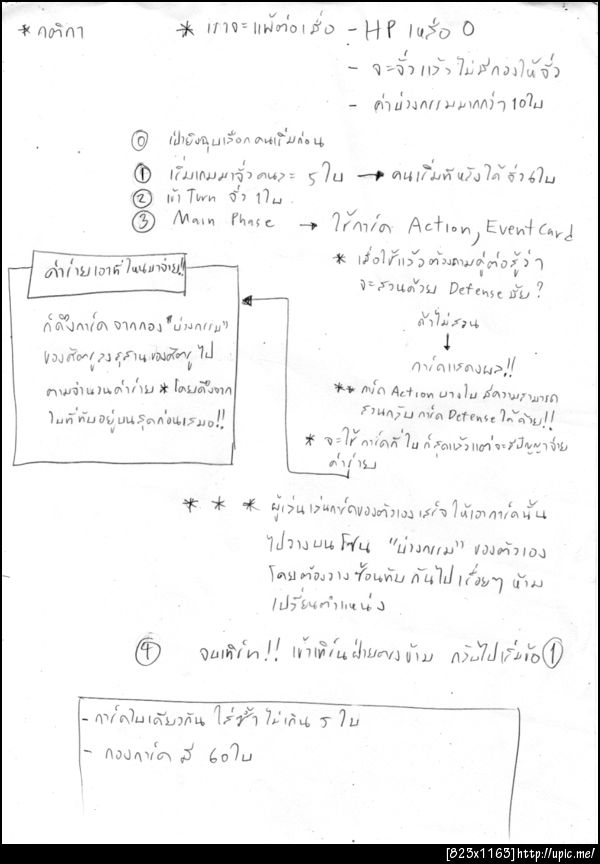 * กติกา
* เราจะแพ้ต่อเมื่อ - HP เหลือ 0
- จะจั่วแล้วไม่มีกองให้จั่ว
- ค่าบ่วงกรรมมากกว่า 10ใบ
0 เป่ายิงฉุบเลือกคนเริ่มก่อน
1 เริ่มเกมมาจั่วคนละ 5 ใบ → คนเริ่มทีหลังได้
2 เข้า Turn จั่ว 1ใบ
3 Main Phase → ใช้การ์ด Action, Event Card
* เมื่อใช้แล้วต้องถามคู่ต่อสู้ว่า
จะสวนด้วย Defense มั้ย?
ถ้าไม่สวน
↓
การ์ดแสดงผล!!
** การ์ด Action บางใบ มีความสามารถ
สวนกลับ การ์ด Defense ได้ด้วย!!
* จะใช้ การ์ดกี่ ใบ ก็สุดแล้วแต่จะมีปัญญาจ่าย
ค่าร่าย
ค่าร่ายเอาที่ไหนมาจ่าย!!
ก็ดึงการ์ด จากกอง "บ่วงกรรม"
ของศัตรูลงสุสานของศัตรู ไป
ตามจำนวนค่าร่าย * โดยดึงจาก
ใบที่ทับอยู่บนสุดก่อนเสมอ!!
* * * ผู้เล่นเล่นการ์ดของตัวเอง เสร็จ ให้เอาการ์ดนั้น
ไปวางบน โซน "บ่วงกรรม" ของตัวเอง
โดยต้องวาง ซ้อนทับ กันไปเรื่อยๆ ห้าม
เปลี่ยนตำแหน่ง
4 จบเทิร์น!! เข้าเทิร์นฝ่ายตรงข้าม กลับไปเริ่มข้อ 1
- การ์ดใบเดียวกัน ใส่ซ้ำ ไม่เกิน 5 ใบ
- กองการ์ด มี 60ใบ
[823x1163]http://upic.me/